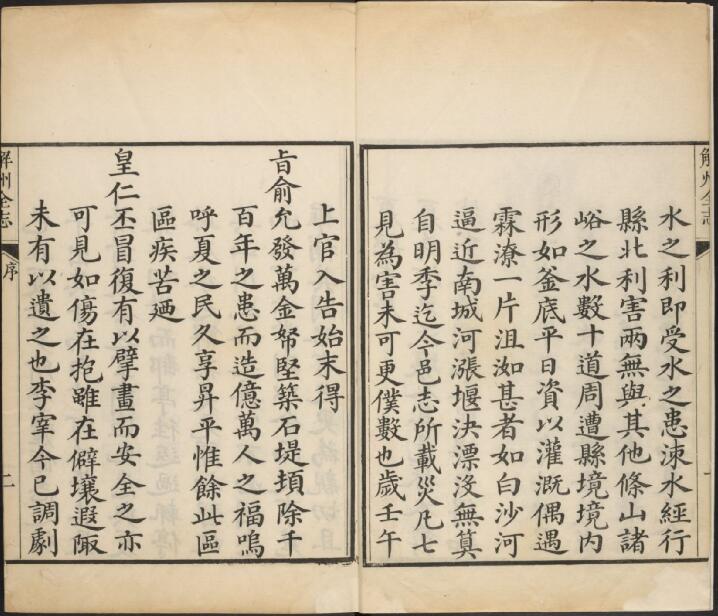 解州全志
水之利即受水之患涑水經行
縣北利害兩無與其他條山諸
峪之水數十道周遭縣境境内
形如釜底平日資以灌溉偶遇
霖潦一片沮洳甚者如白沙河
逼近南城河漲堰決漂沒無算
自明季迄今邑志所載災凡七
見為害未可更僕數也歲壬午
上官入告始末得
旨俞允發萬金帑堅築石堤頓除千
百年之患而造億萬人之福嗚
呼夏之民久享昇平惟餘此區
區疾苦廼
皇仁丕冒復有以擘畫而安全之亦
可見如傷在抱雖在僻壤遐陬
未有以遺之也李宰今已調劇
解州全志
序
二